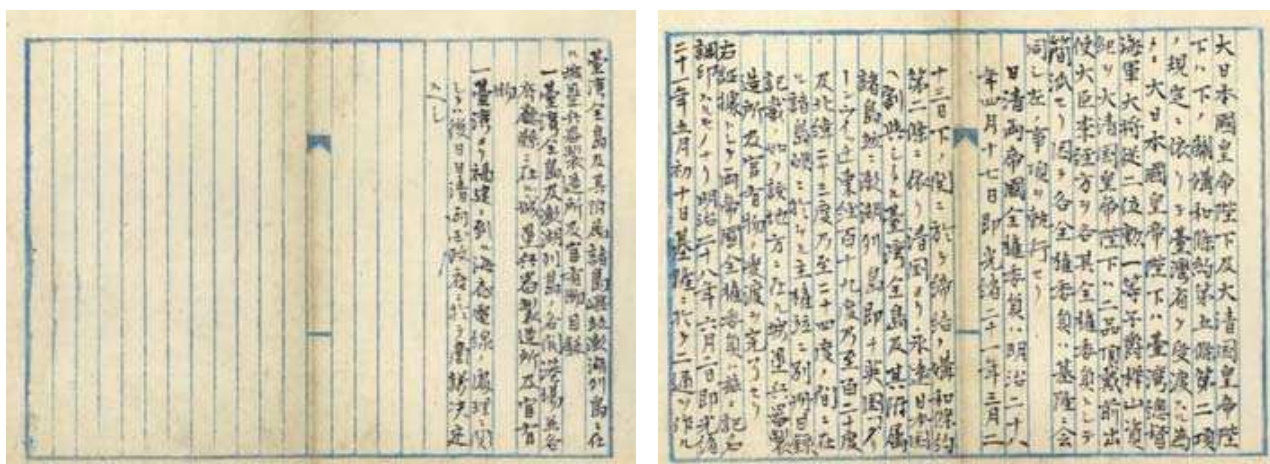 大日本國皇帝陛下及大清國皇帝陛
下ハ下ノ關媾和條約第五條第二項
ノ規定ニ依リテ臺灣省ヲ受渡スル為
メ大日本國皇帝陛下ハ臺灣總督
海軍大將從二位勳一等子爵樺山資
紀ヲ大清國皇帝陛下ハ二品頂戴前出
使大臣李經方ヲ各其全權委員トシテ
簡派セリ因テ各全權委員ハ基隆ニ會
同シ左ノ事項ヲ執行セリ
日清兩帝國全權委員ハ明治二十八
年四月十七日即光緒二十一年三月二
十三日下ノ關ニ於テ締結ノ媾和條約
第二條ニ依リ清國ヨリ永遠日本國
ヘ割與シタル臺灣全島及其附屬
諸島並ニ澎湖列島即チ英國グリ
ーンウィチ東經百十九度乃至百二十度
及北緯二十三度乃至二十四度ノ間ニ在
ル諸島嶼ニ於ケル主權竝ニ別冊目錄
記載ノ如ク該地方ニ在ル城壘兵器製
造所及官有物ノ受渡ヲ完了セリ
右證據トシテ兩帝國全權委員ハ茲ニ記名
調印スルモノナリ明治二十八年六月二日即光緒
二十一年五月初十日基隆ニ於テ二通ヲ作ル
臺灣全島及其附屬諸島嶼竝澎湖列島ニ在
ル城壘兵器製造所及官有物目錄
一臺灣全島及澎湖列島ノ各開港場並各
府廳縣ニ在ル城壘兵器製造所及官有
物
一臺灣ヨリ福建ニ到ル海底電線ノ處理ニ關
シテハ後日日清兩國政府ニ於テ商議決定
スヘシ